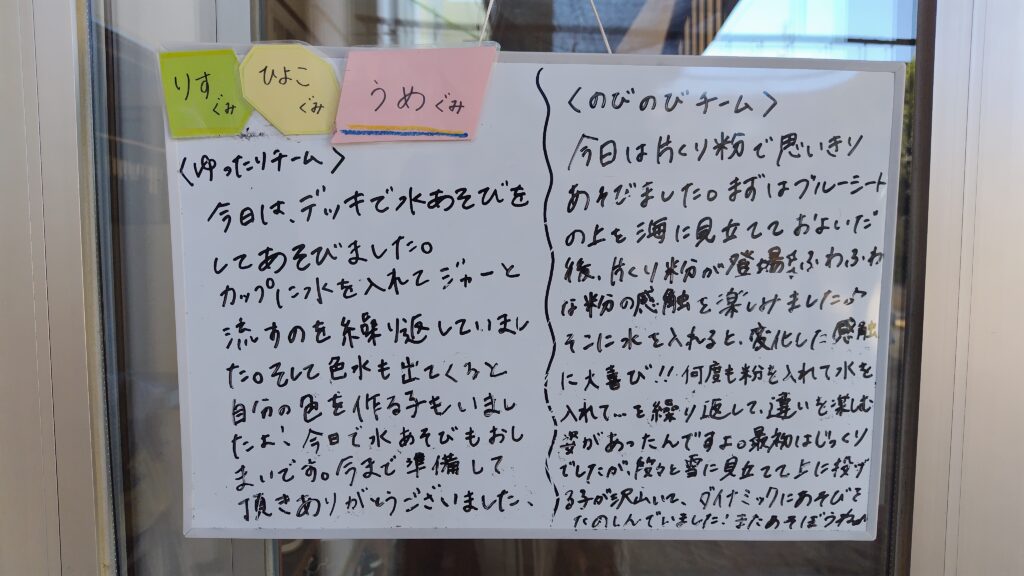 りすぐみ
ひよこぐみ
うめぐみ
〈ゆったりチーム〉
今日は、デッキで水あそびを
してあそびました。
カップに水を入れてジャーと
流すのを繰り返していまし
た。そして色水も出てくると
自分の色を作る子もいまし
たよ!今日で水あそびもおし
まいです。今まで準備して
頂きありがとうございました、
〈のびのびチーム〉
今日は片くり粉で思いきり
あそびました。まずはブルーシート
の上を海に見立てておよいだ
後、片くり粉が登場!ふわふわ
な粉の感触を楽しみました♪
そこに水を入れると、変化した感触
に大喜び!!何度も粉を入れて水を
入れて…を繰り返して、違いを楽しむ
姿があったんですよ。最初はじっくり
でしたが、段々と雪に見立てて上に投げ
る子が沢山いて、ダイナミックにあそびを
たのしんでいました!またあそぼうね